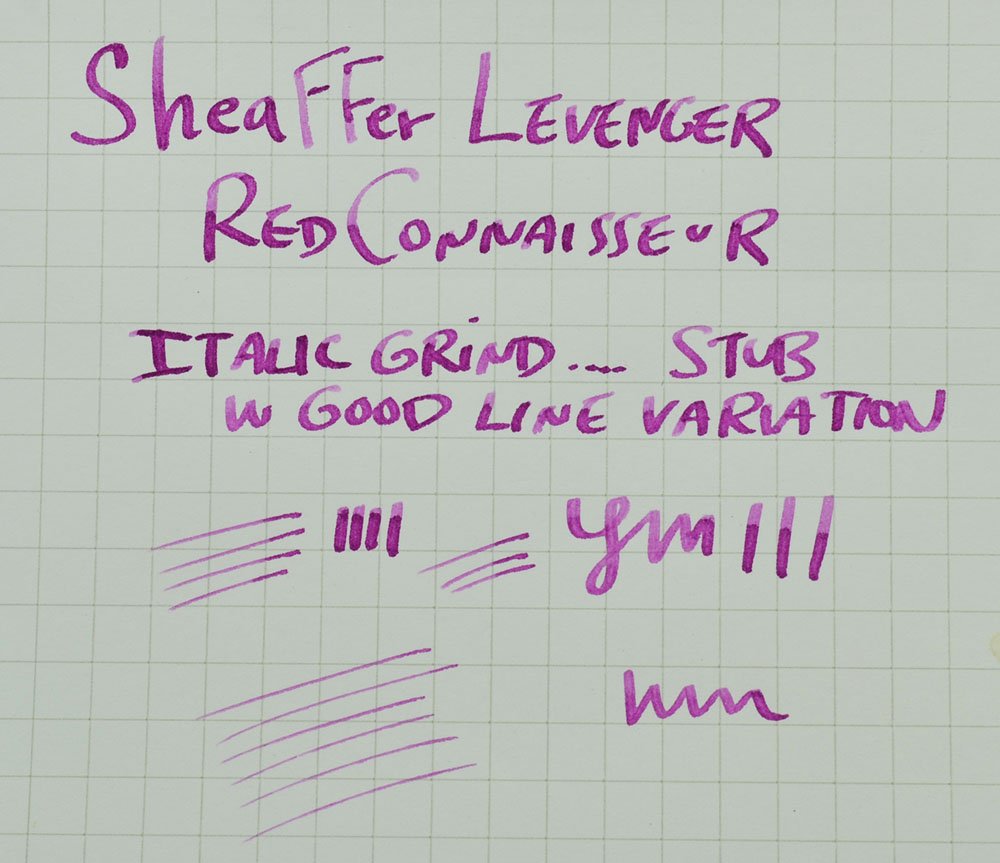 Sheaffer LEVENGER
RED CONNAISSEUR
ITALIC GRIND.... STUB
W GOOD LINE VARIATION